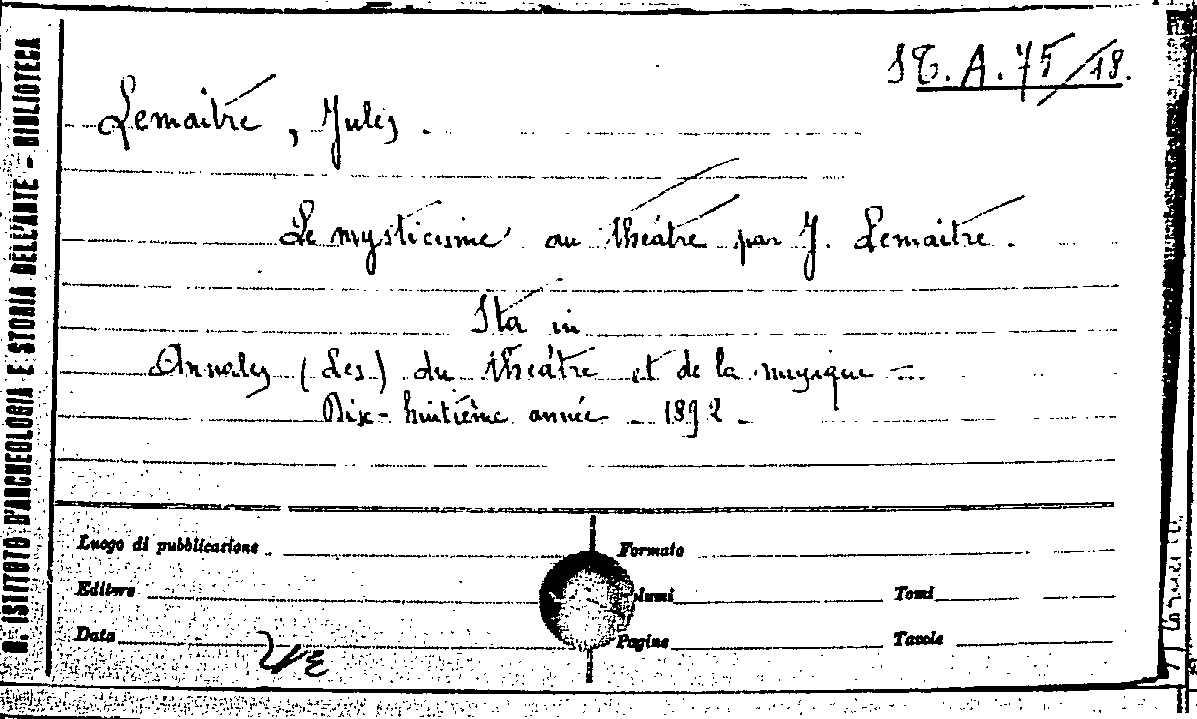 ST.A.75/18.
Lemaitre, Jules.
Le mysticisme au théâtre par J. Lemaitre.
Sta in
Annales (Les) du théâtre et de la musique ...
Dix-huitième année - 1892 -
Luogo di pubblicazione
Formato
Editore
lumi
Tomi
Data
Pagine
Tavole
R. ISTITUTO D'ARCHEOLOGIA E STORIA DELL'ARTE - BIBLIOTECA